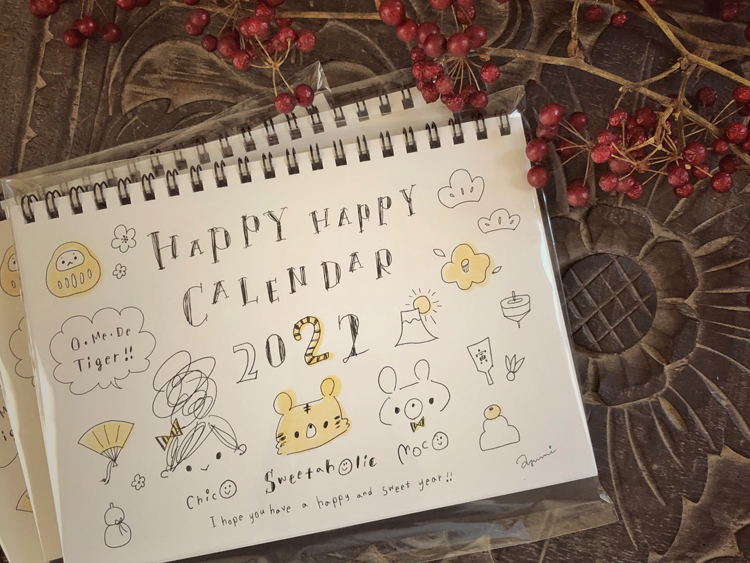 HAPPY HAPPY
CALENDAR
2022
O.Me.De
Tiger!!
寅
Chico
Sweetaholic
Moco
I hope you have a happy and sweet year!!